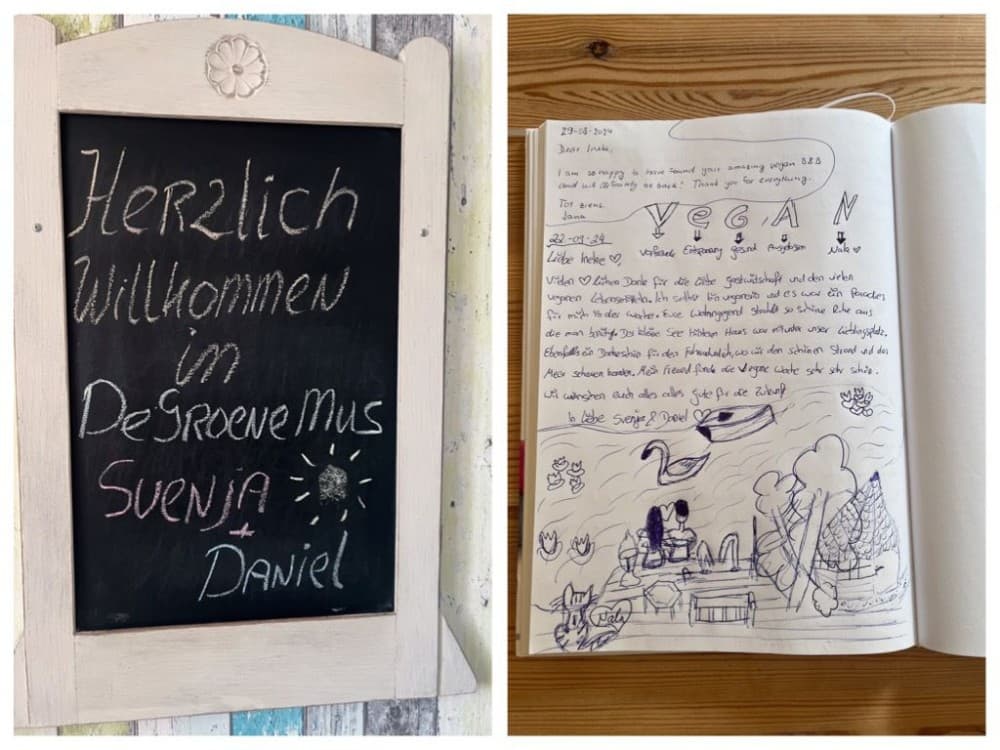 Herzlich
Willkommen
im
De Groene Mus
Svenja
+
Daniel
29-08-2024
Dear Ineke,
I am so happy to have found your amazing vegan B&B
and will definitely be back! Thank you for everything.
Tot ziens
VEGAN
22-09-24
Vorfreude Entspannung gesund Ausgelassen Nala
Liebe Ineke
Vielen lieben Dank für die liebe Gastwirtschaft und den vielen
veganen Lebensmitteln. Ich selber bin Veganerin und es war ein Paradies
für mich Eure Wohngegend strahlt so schöne Ruhe aus
die man benötigt. Der kleine See hinterm Haus war mitunter unser Lieblingsplatz.
Ebenfalls ein Dankeschön für den Fahrradverleih, wo wir den schönen Strand und das
Meer schauen konnten. Mein Freund fande die vegane Woche sehr sehr schön.
Wir wünschen euch alles alles gute für die Zukunft
In Liebe Svenja & Daniel
Nala